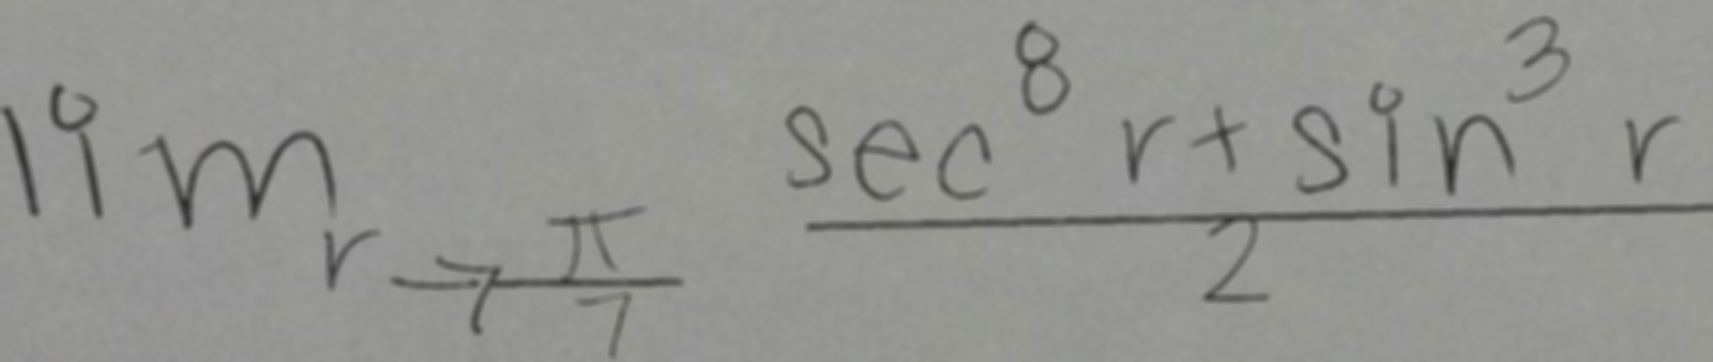 \lim_{r \to \frac{\pi}{7}} \frac{\sec^8 r + \sin^3 r}{2}